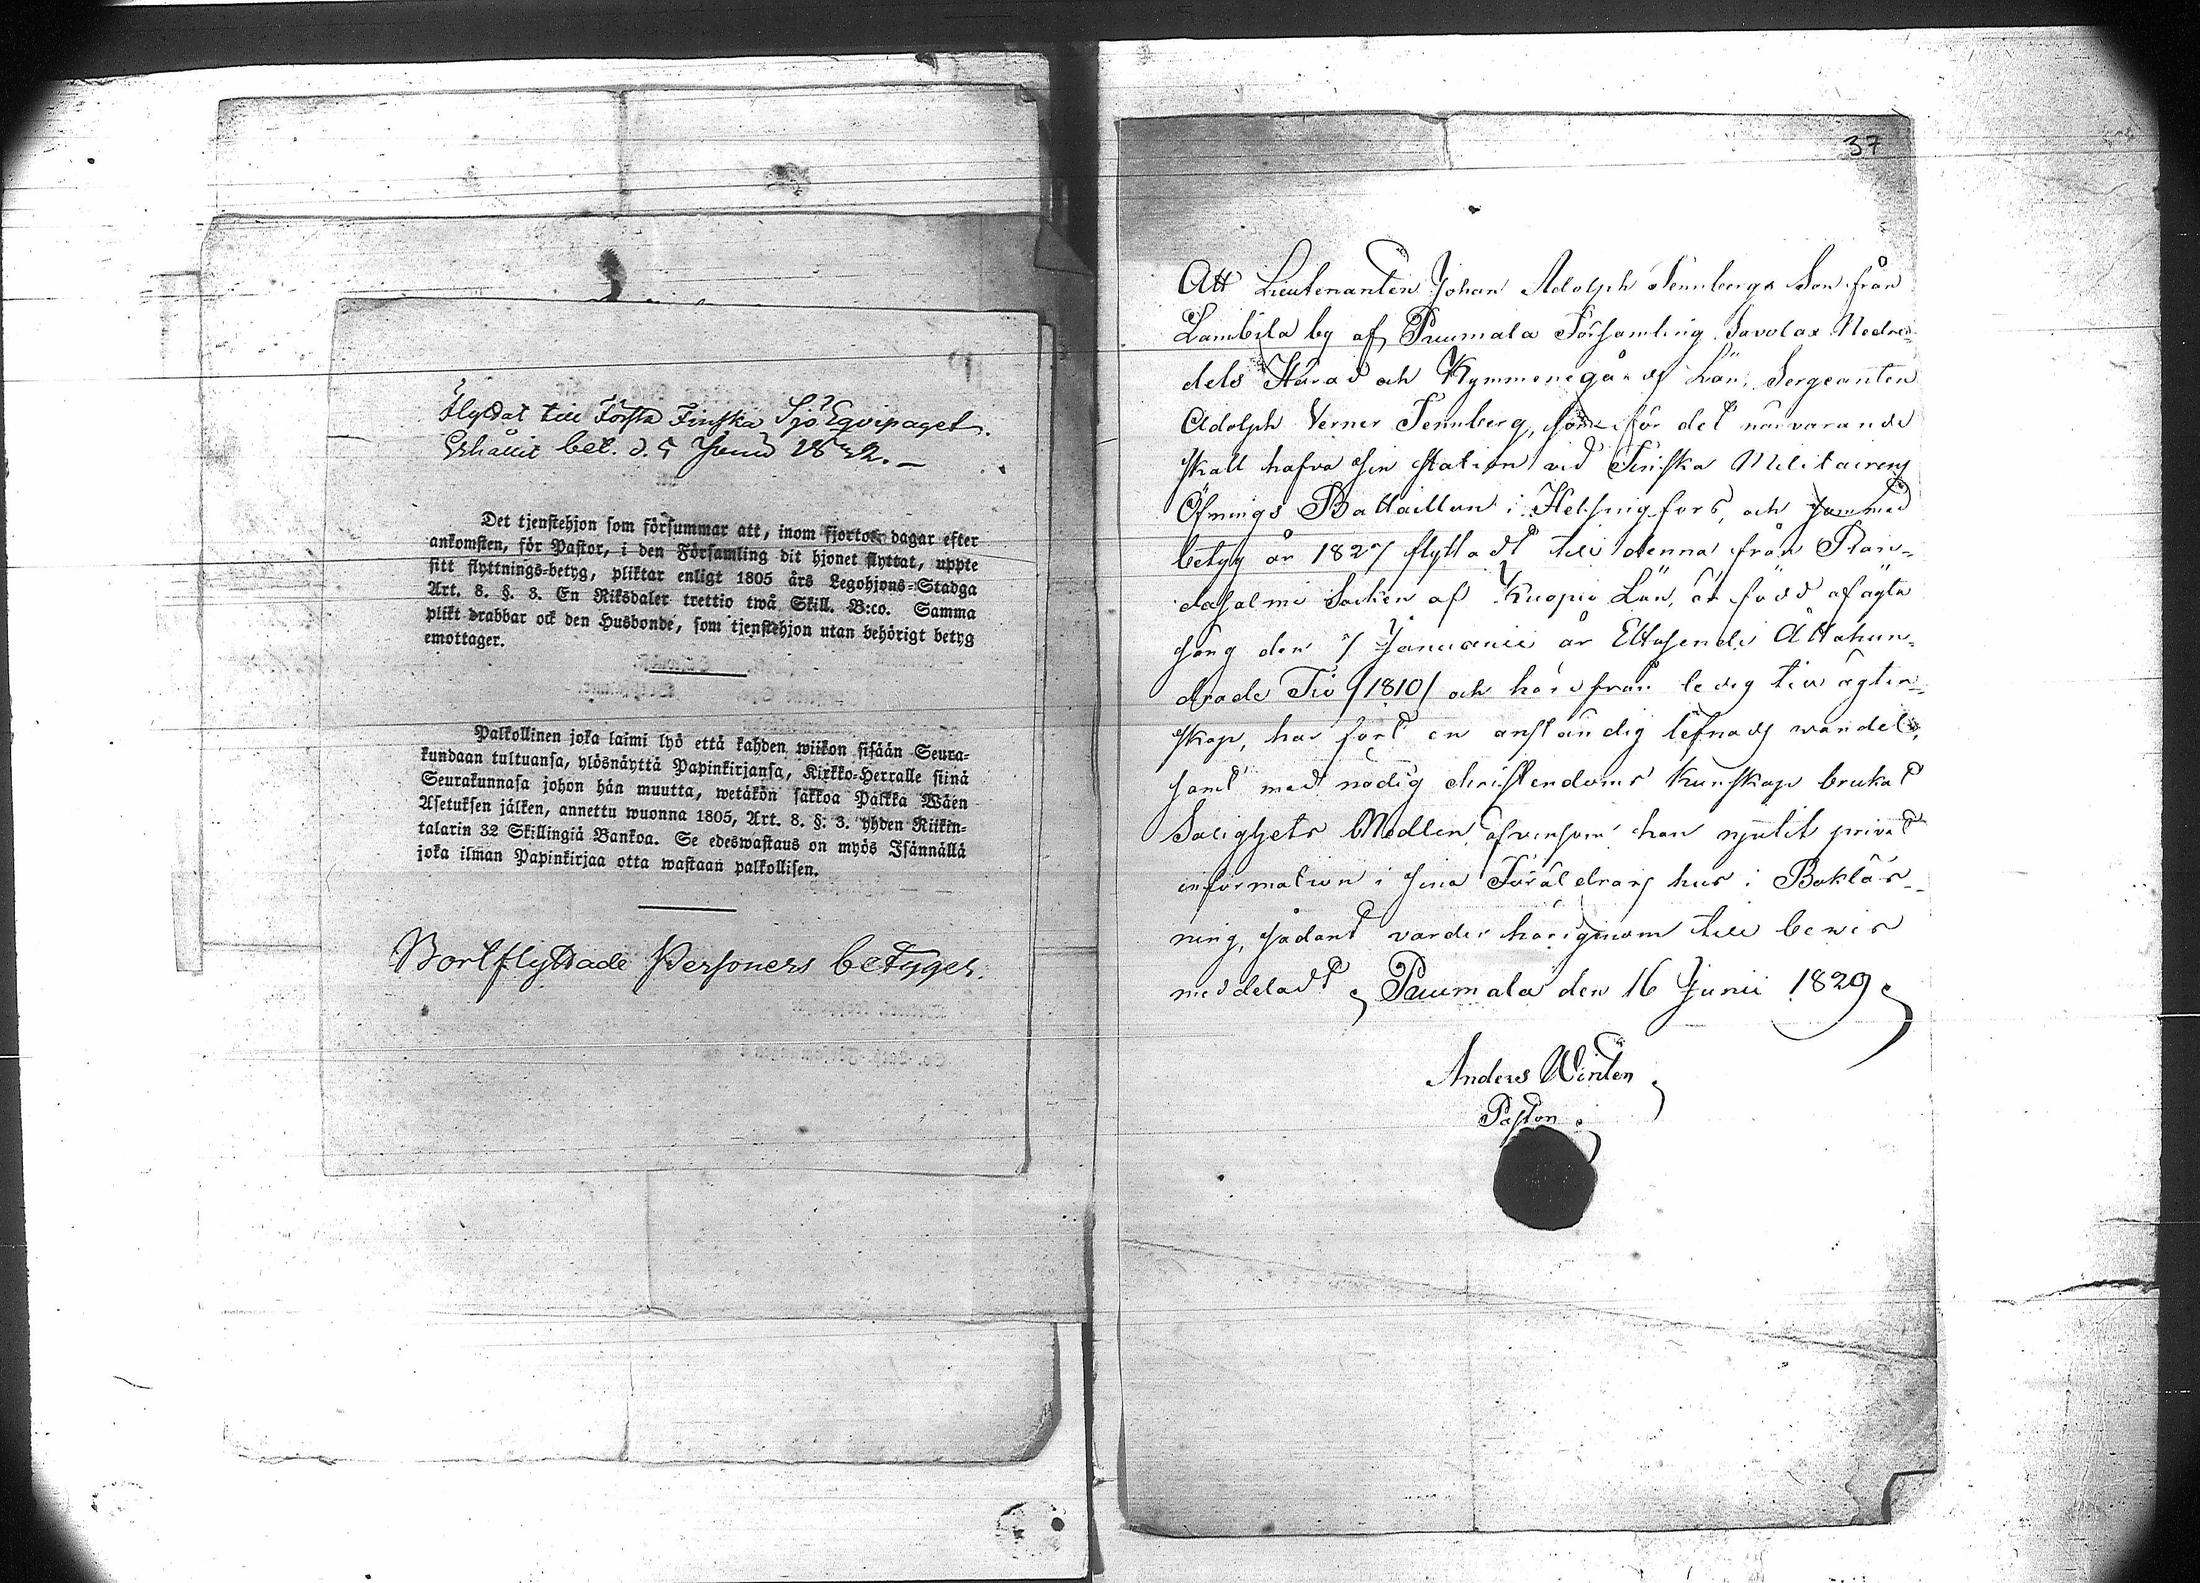 Flyttat till Första Finska Sjö Eqvipaget.
Erhållit bet. d. 5 Junii 1832.
Det tjenstehjon som försummar att, inom fjorton dagar efter
ankomsten, för Pastor, i den Församling dit hjonet flyttat, uppte
sitt flyttnings-betyg, pliktar enligt 1805 års Legohjons-Stadga
Art. 8. §. 3. En Riksdaler trettio twå Skill. B:co. Samma
plikt drabbar ock den Husbonde, som tjenstehjon utan behörigt betyg
emottager.
Palkollinen joka laimi lyö että kahden wiikon sisään Seura-
kundaan tultuansa, ylösnäyttä Papinkirjansa, Kirkko-Herralle siinä
Seurakunnasa johon hän muutta, wetäkön sakkoa Palkka Wäen
Asetuksen jälken, annettu wuonna 1805, Art. 8. §. 3. yhden Riikin-
talarin 32 Skillingiä Bankoa. Se edeswastaus on myös Isännällä
joka ilman Papinkirjaa otta wastaan palkollisen.
Bortflyttade Personers betyger.
37
Att Lieutenanten Johan Adolph Tennbergs Son från
Lambila by af Puumala Församling Savolax Nedre-
dels Härad och Kymmenegårds Län, Sergeanten
Adolph Verner Tennberg, som för det närvarande
skall hafva sin station vid Finska Militairens
Öfnings Bataillon i Helsingfors, och som med
betyg år 1827 flyttadt till denna från Plan-
dasalmi Socken af Kuopio Län, är född af ägta
säng den 7 Januarii år Ettusende Åttahun-
drade Tio /1810/ och härifrån ledig till ägten-
skap, har fört en anständig lefnads wandel,
samt med nödig christendoms kunskap brukat
Salighets Medlen, äfvensom han njutit privat
information i sina Föräldrars hus i Boklär-
ning, sådant varder härigenom till bewis
meddeladt, Puumala den 16 Junii 1829.
Anders
Pastor.